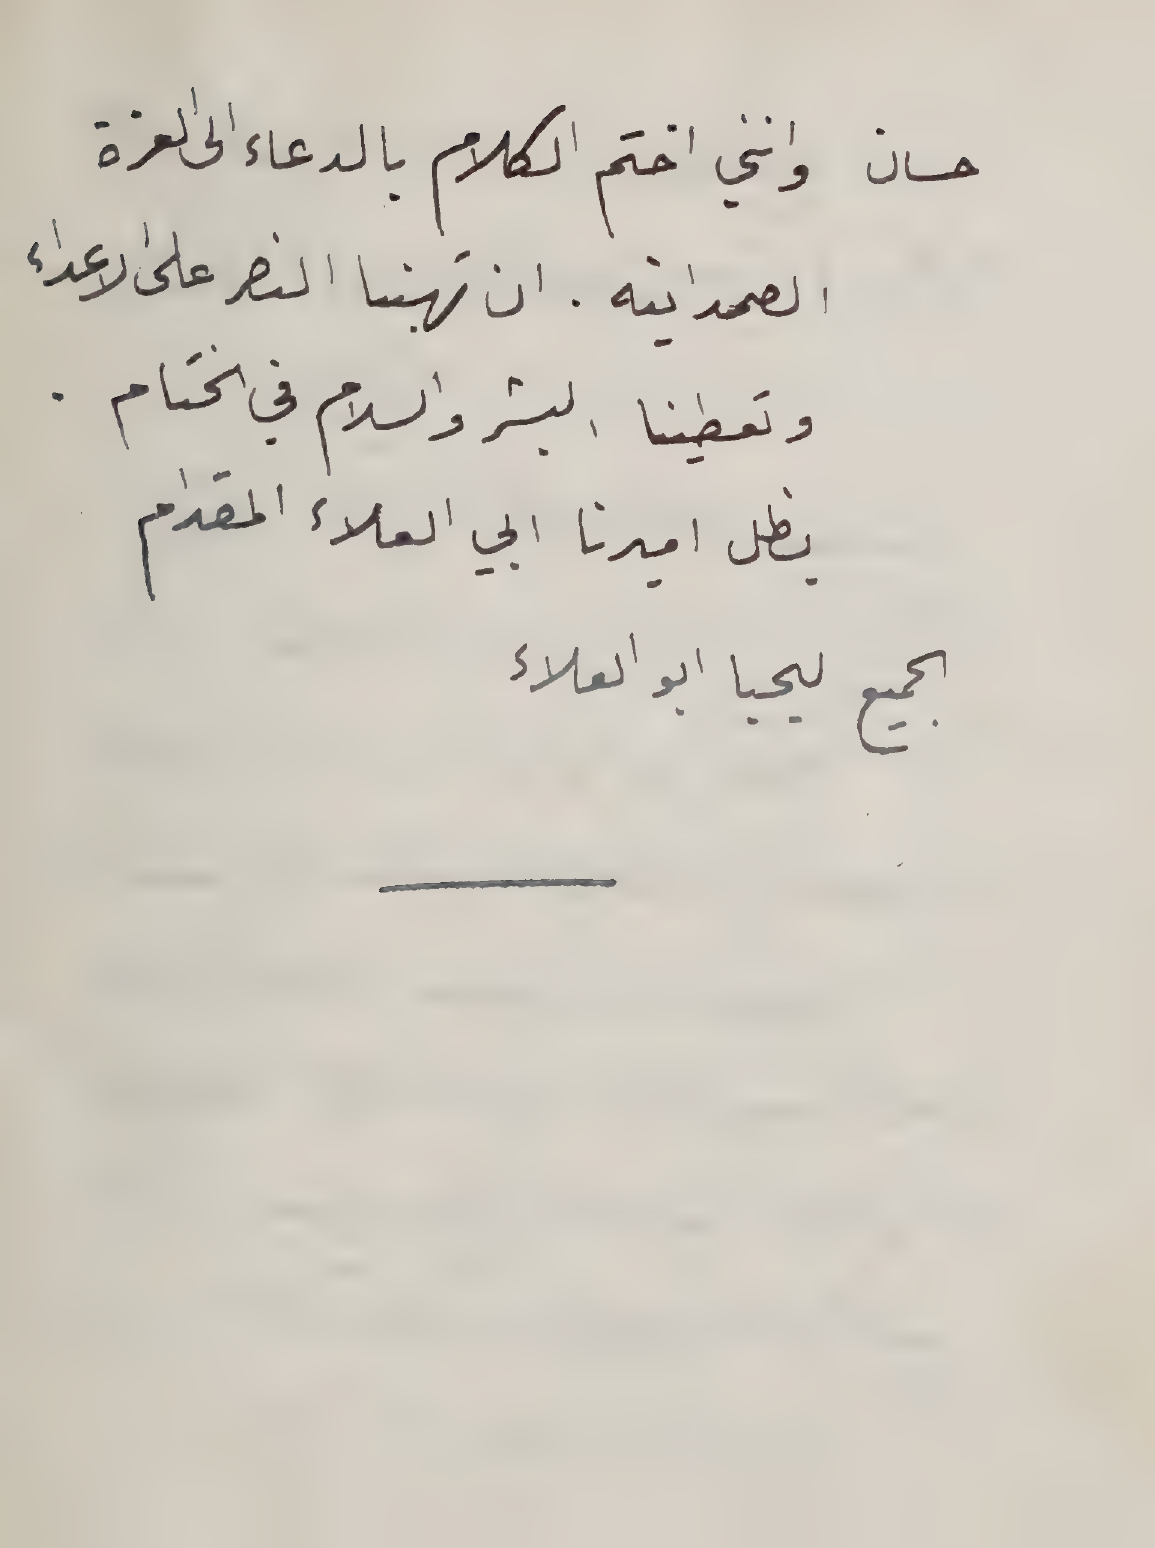 حسان وانني اختم الكلام بالدعاء الى العزة
الصمدانيه . ان تهبنا النصر على الاعداء
وتعطينا البشر والسلام في الختام .
بظل اميرنا ابي العلاء المقدام
الجميع ليحيا ابو العلاء